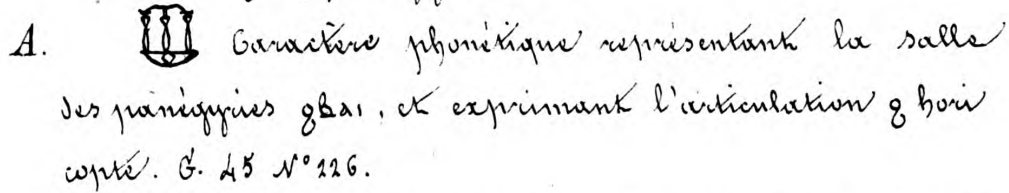 A. Caractère phonétique représentant la salle
des panégyries ϩⲃⲁⲓ, et exprimant l'articulation ϩ hori
copte. G. 45 N° 226.